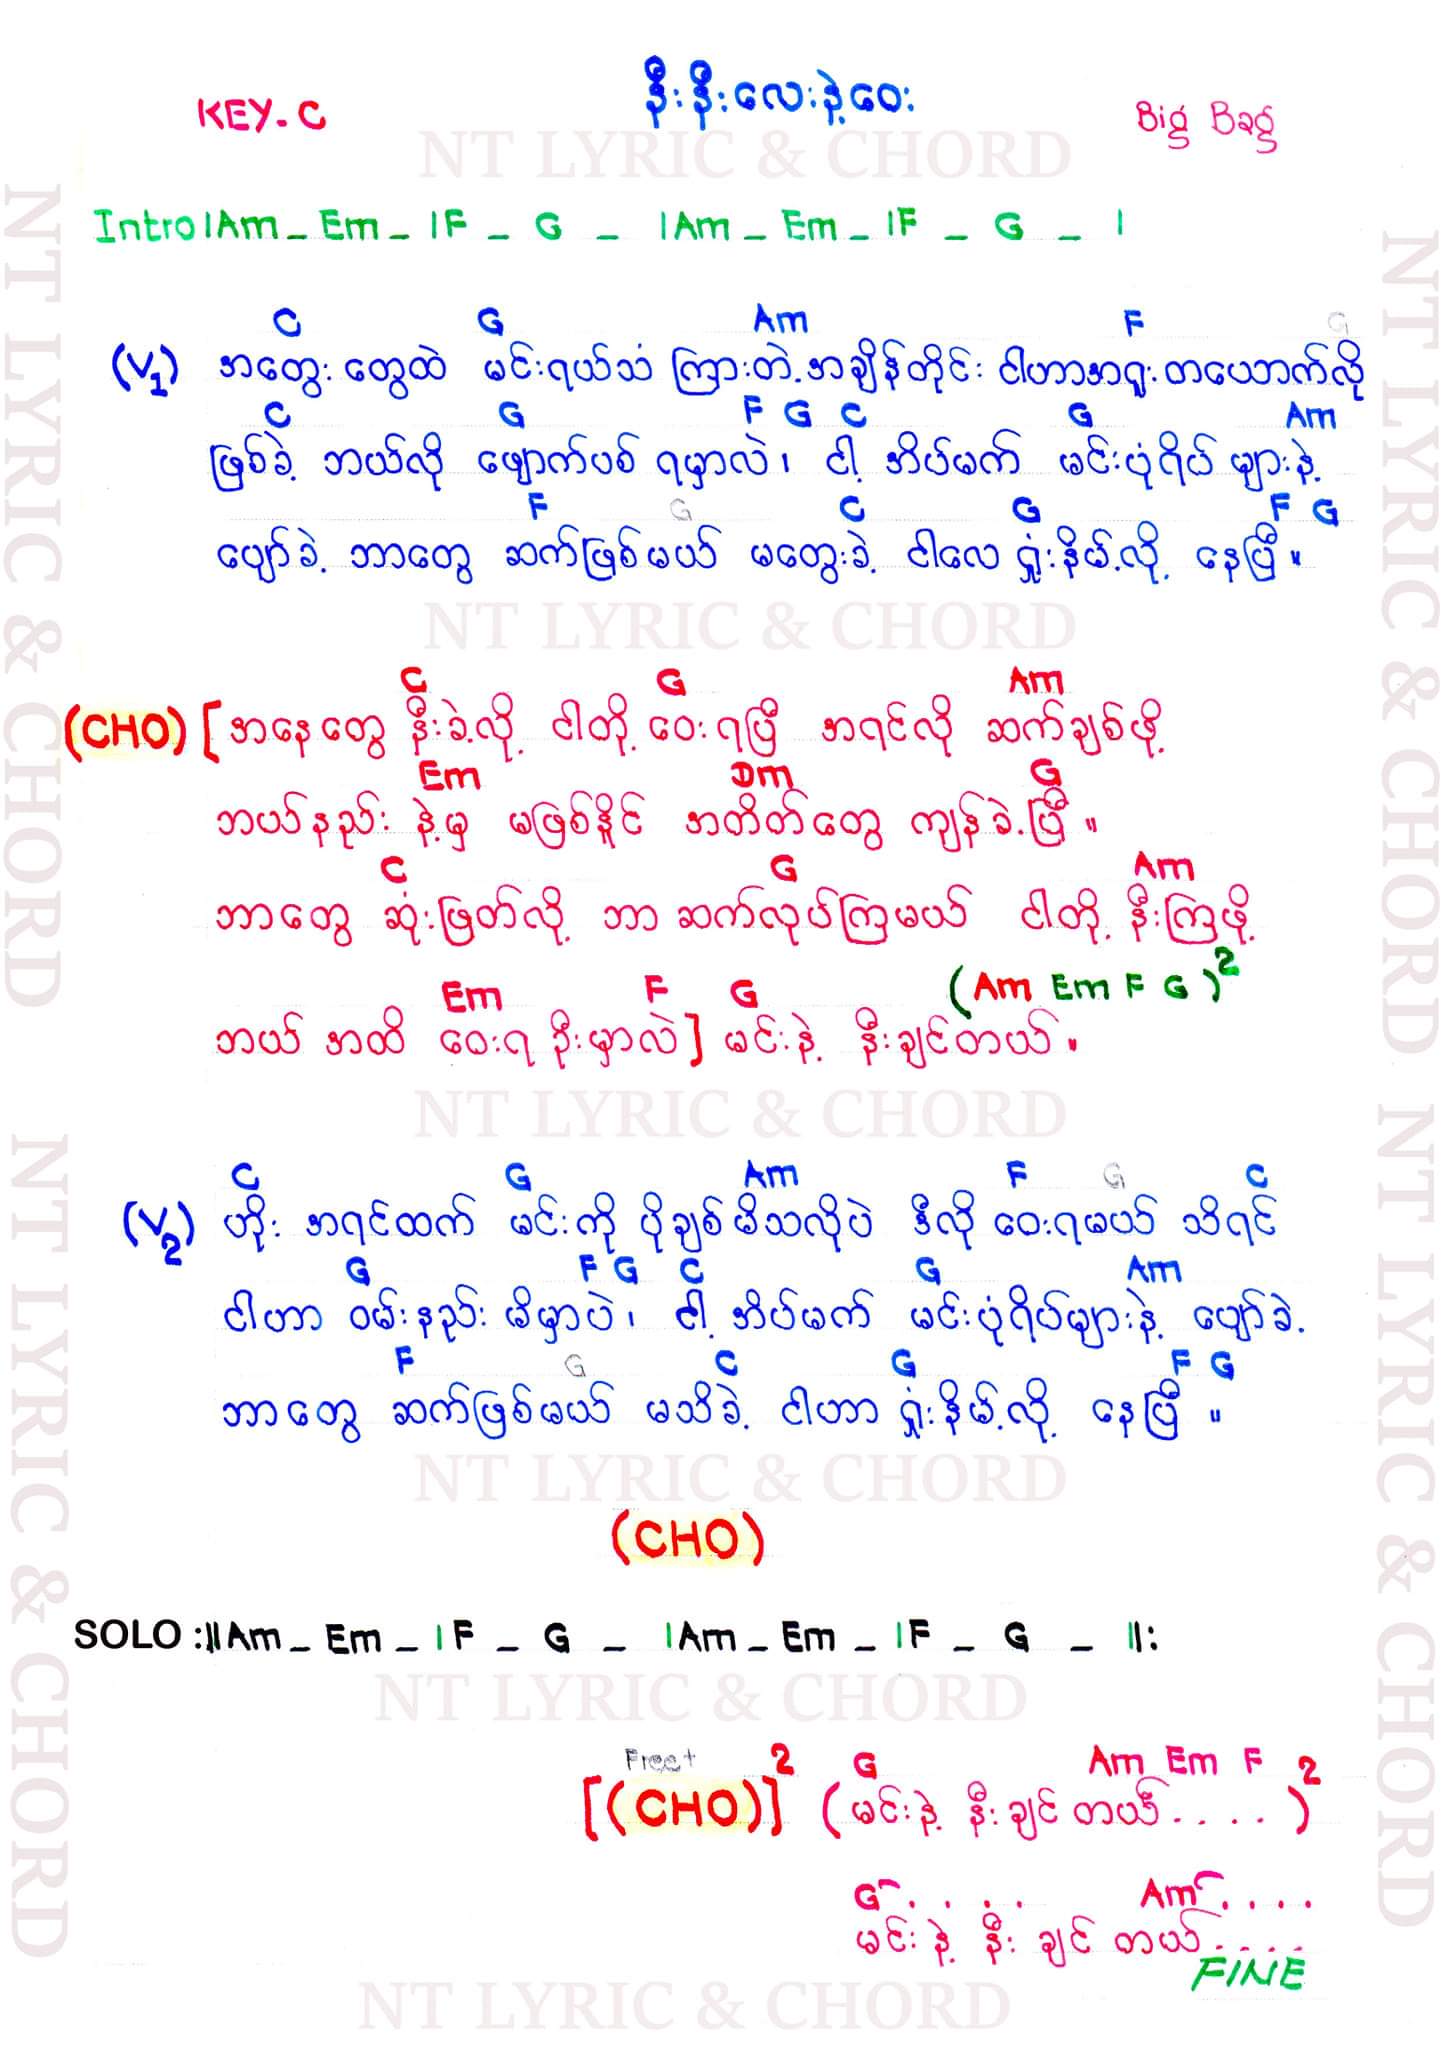 KEY-C နီးနီးလေးနဲ့ဝေး Big Bag
NT LYRIC & CHORD
Intro |Am _ Em _ |F _ G _ |Am _ Em _ |F _ G _ |
C G Am F G
(V1) အတွေးတွေထဲ မင်းရယ်သံ ကြားတဲ့အချိန်တိုင်း ငါဟာအရူးတယောက်လို
C G F G C G Am
ဖြစ်ခဲ့ ဘယ်လို ဖျောက်ပစ် ရမှာလဲ၊ ငါ့ အိပ်မက် မင်းပုံရိပ် များနဲ့
F G C G F G
ပျော်ခဲ့ ဘာတွေ ဆက်ဖြစ်မယ် မတွေးခဲ့ ငါလေ ရှုံးနိမ့်လို့ နေပြီ။
NT LYRIC & CHORD
C G Am
(CHO) [အနေတွေ နီးခဲ့လို့ ငါတို့ ဝေးရပြီ အရင်လို ဆက်ချစ်ဖို့
Em Dm G
ဘယ်နည်း နဲ့မှ မဖြစ်နိုင် အတိတ်တွေ ကျန်ခဲ့ပြီ။
C G Am
ဘာတွေ ဆုံးဖြတ်လို့ ဘာ ဆက်လုပ်ကြမယ် ငါတို့ နီးကြဖို့
Em F G (Am Em F G)2
ဘယ် အထိ ဝေးရ ဦးမှာလဲ] မင်းနဲ့ နီးချင်တယ်။
NT LYRIC & CHORD
C G Am F G C
(V2) ဟိုး အရင်ထက် မင်းကို ပိုချစ်မိသလိုပဲ ဒီလို ဝေးရမယ် သိရင်
G F G C G Am
ငါဟာ ဝမ်းနည်း မိမှာပဲ၊ ငါ့ အိပ်မက် မင်းပုံရိပ်များနဲ့ ပျော်ခဲ့
F G C G F G
ဘာတွေ ဆက်ဖြစ်မယ် မသိခဲ့ ငါဟာ ရှုံးနိမ့်လို့ နေပြီ။
NT LYRIC & CHORD
(CHO)
SOLO :||Am _ Em _ |F _ G _ |Am _ Em _ |F _ G _ ||:
NT LYRIC & CHORD
Free+ G Am Em F
[(CHO)]2 (မင်းနဲ့ နီးချင်တယ်....)2
G.... Am....
မင်းနဲ့ နီးချင်တယ်....
FINE
NT LYRIC & CHORD
NT LYRIC & CHORD
NT LYRIC & CHORD
NT LYRIC & CHORD
NT LYRIC & CHORD